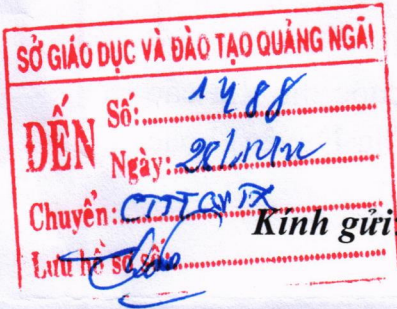 SỞ GIÁO DỤC VÀ ĐÀO TẠO QUẢNG NGÃI
ĐẾN
Số: 1488
Ngày: 28/12/22
Chuyển:
Kính gửi:
Lưu hồ sơ số: